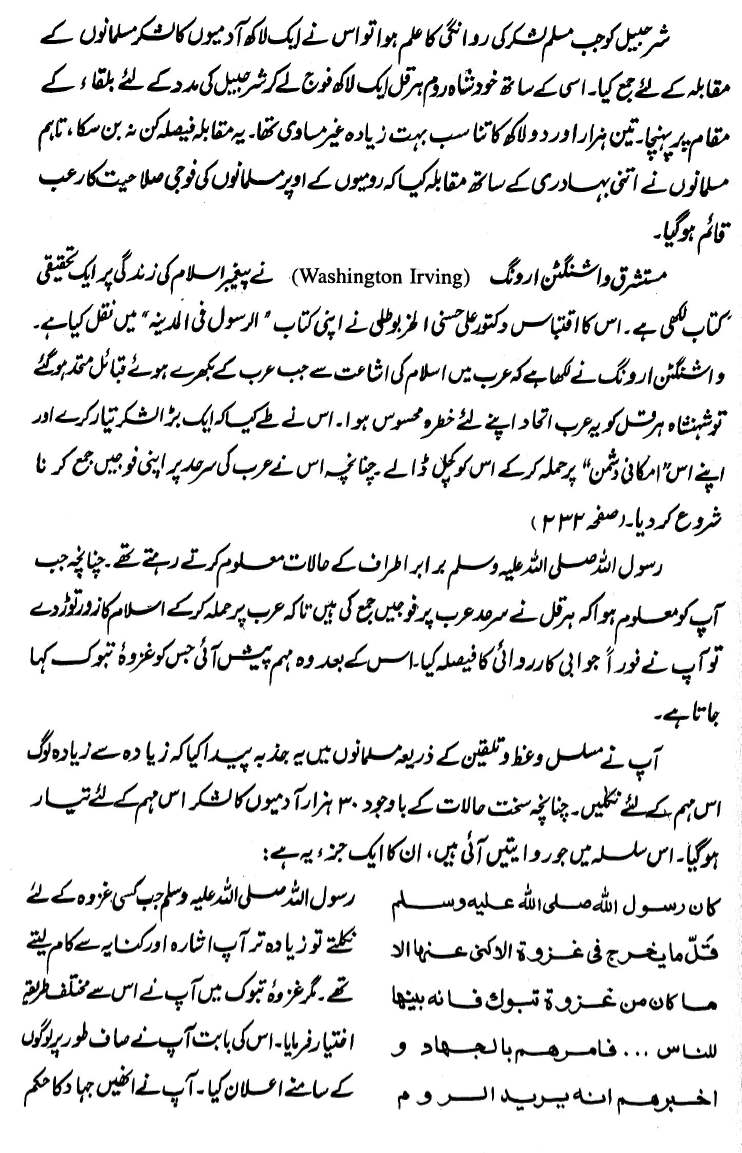 شرحبیل کو جب مسلم لشکر کی روانگی کا علم ہوا تو اس نے ایک لاکھ آدمیوں کا لشکر مسلمانوں کے
مقابلہ کے لئے جمع کیا۔ اسی کے ساتھ خود شاہ روم ہرقل ایک لاکھ فوج لے کر شرحبیل کی مدد کے لئے بلقاء کے
مقام پر پہنچا۔ تین ہزار اور دو لاکھ کا تناسب بہت زیادہ غیر مساوی تھا۔ یہ مقابلہ فیصلہ کن نہ بن سکا، تاہم
مسلمانوں نے اتنی بہادری کے ساتھ مقابلہ کیا کہ رومیوں کے اوپر مسلمانوں کی فوجی صلاحیت کا رعب
قائم ہوگیا۔
مستشرق واشنگٹن ارونگ (Washington Irving) نے پیغمبر اسلام کی زندگی پر ایک تحقیقی
کتاب لکھی ہے۔ اس کا اقتباس دکتور علی حسنی الخربوطلی نے اپنی کتاب "الرسول فی المدینہ" میں نقل کیا ہے۔
واشنگٹن ارونگ نے لکھا ہے کہ عرب میں اسلام کی اشاعت سے جب عرب کے بکھرے ہوئے قبائل متحد ہوگئے
تو شہنشاہ ہرقل کو یہ عرب اتحاد اپنے لئے خطرہ محسوس ہوا۔ اس نے طے کیا کہ ایک بڑا لشکر تیار کرے اور
اپنے اس "امکانی دشمن" پر حملہ کرکے اس کو کچل ڈالے۔ چنانچہ اس نے عرب کی سرحد پر اپنی فوجیں جمع کرنا
شروع کردیا۔ (صفحہ ۲۳۲)
رسول اللہ صلی اللہ علیہ وسلم برابر اطراف کے حالات معلوم کرتے رہتے تھے۔ چنانچہ جب
آپ کو معلوم ہوا کہ ہرقل نے سرحد عرب پر فوجیں جمع کی ہیں تاکہ عرب پر حملہ کرکے اسلام کا زور توڑ دے
تو آپ نے فوراً جوابی کارروائی کا فیصلہ کیا۔ اس کے بعد وہ مہم پیش آئی جس کو غزوۂ تبوک کہا
جاتا ہے۔
آپ نے مسلسل وعظ و تلقین کے ذریعہ مسلمانوں میں یہ جذبہ پیدا کیا کہ زیادہ سے زیادہ لوگ
اس مہم کے لئے نکلیں۔ چنانچہ سخت حالات کے باوجود ۳۰ ہزار آدمیوں کا لشکر اس مہم کے لئے تیار
ہوگیا۔ اس سلسلہ میں جو روایتیں آئی ہیں، ان کا ایک جزء یہ ہے:
كان رسول الله صلى الله عليه وسلم
قَلّ ما يخرج في غزوة الا كنى عنها الا
ما كان من غزوة تبوك فانه بينها
للناس ... فامرهم بالجهاد و
اخبرهم انه يريد الروم
رسول اللہ صلی اللہ علیہ وسلم جب کسی غزوہ کے لئے
نکلتے تو زیادہ تر آپ اشارہ اور کنایہ سے کام لیتے
تھے۔ مگر غزوۂ تبوک میں آپ نے اس سے مختلف طریقہ
اختیار فرمایا۔ اس کی بابت آپ نے صاف طور پر لوگوں
کے سامنے اعلان کیا۔ آپ نے انھیں جہاد کا حکم